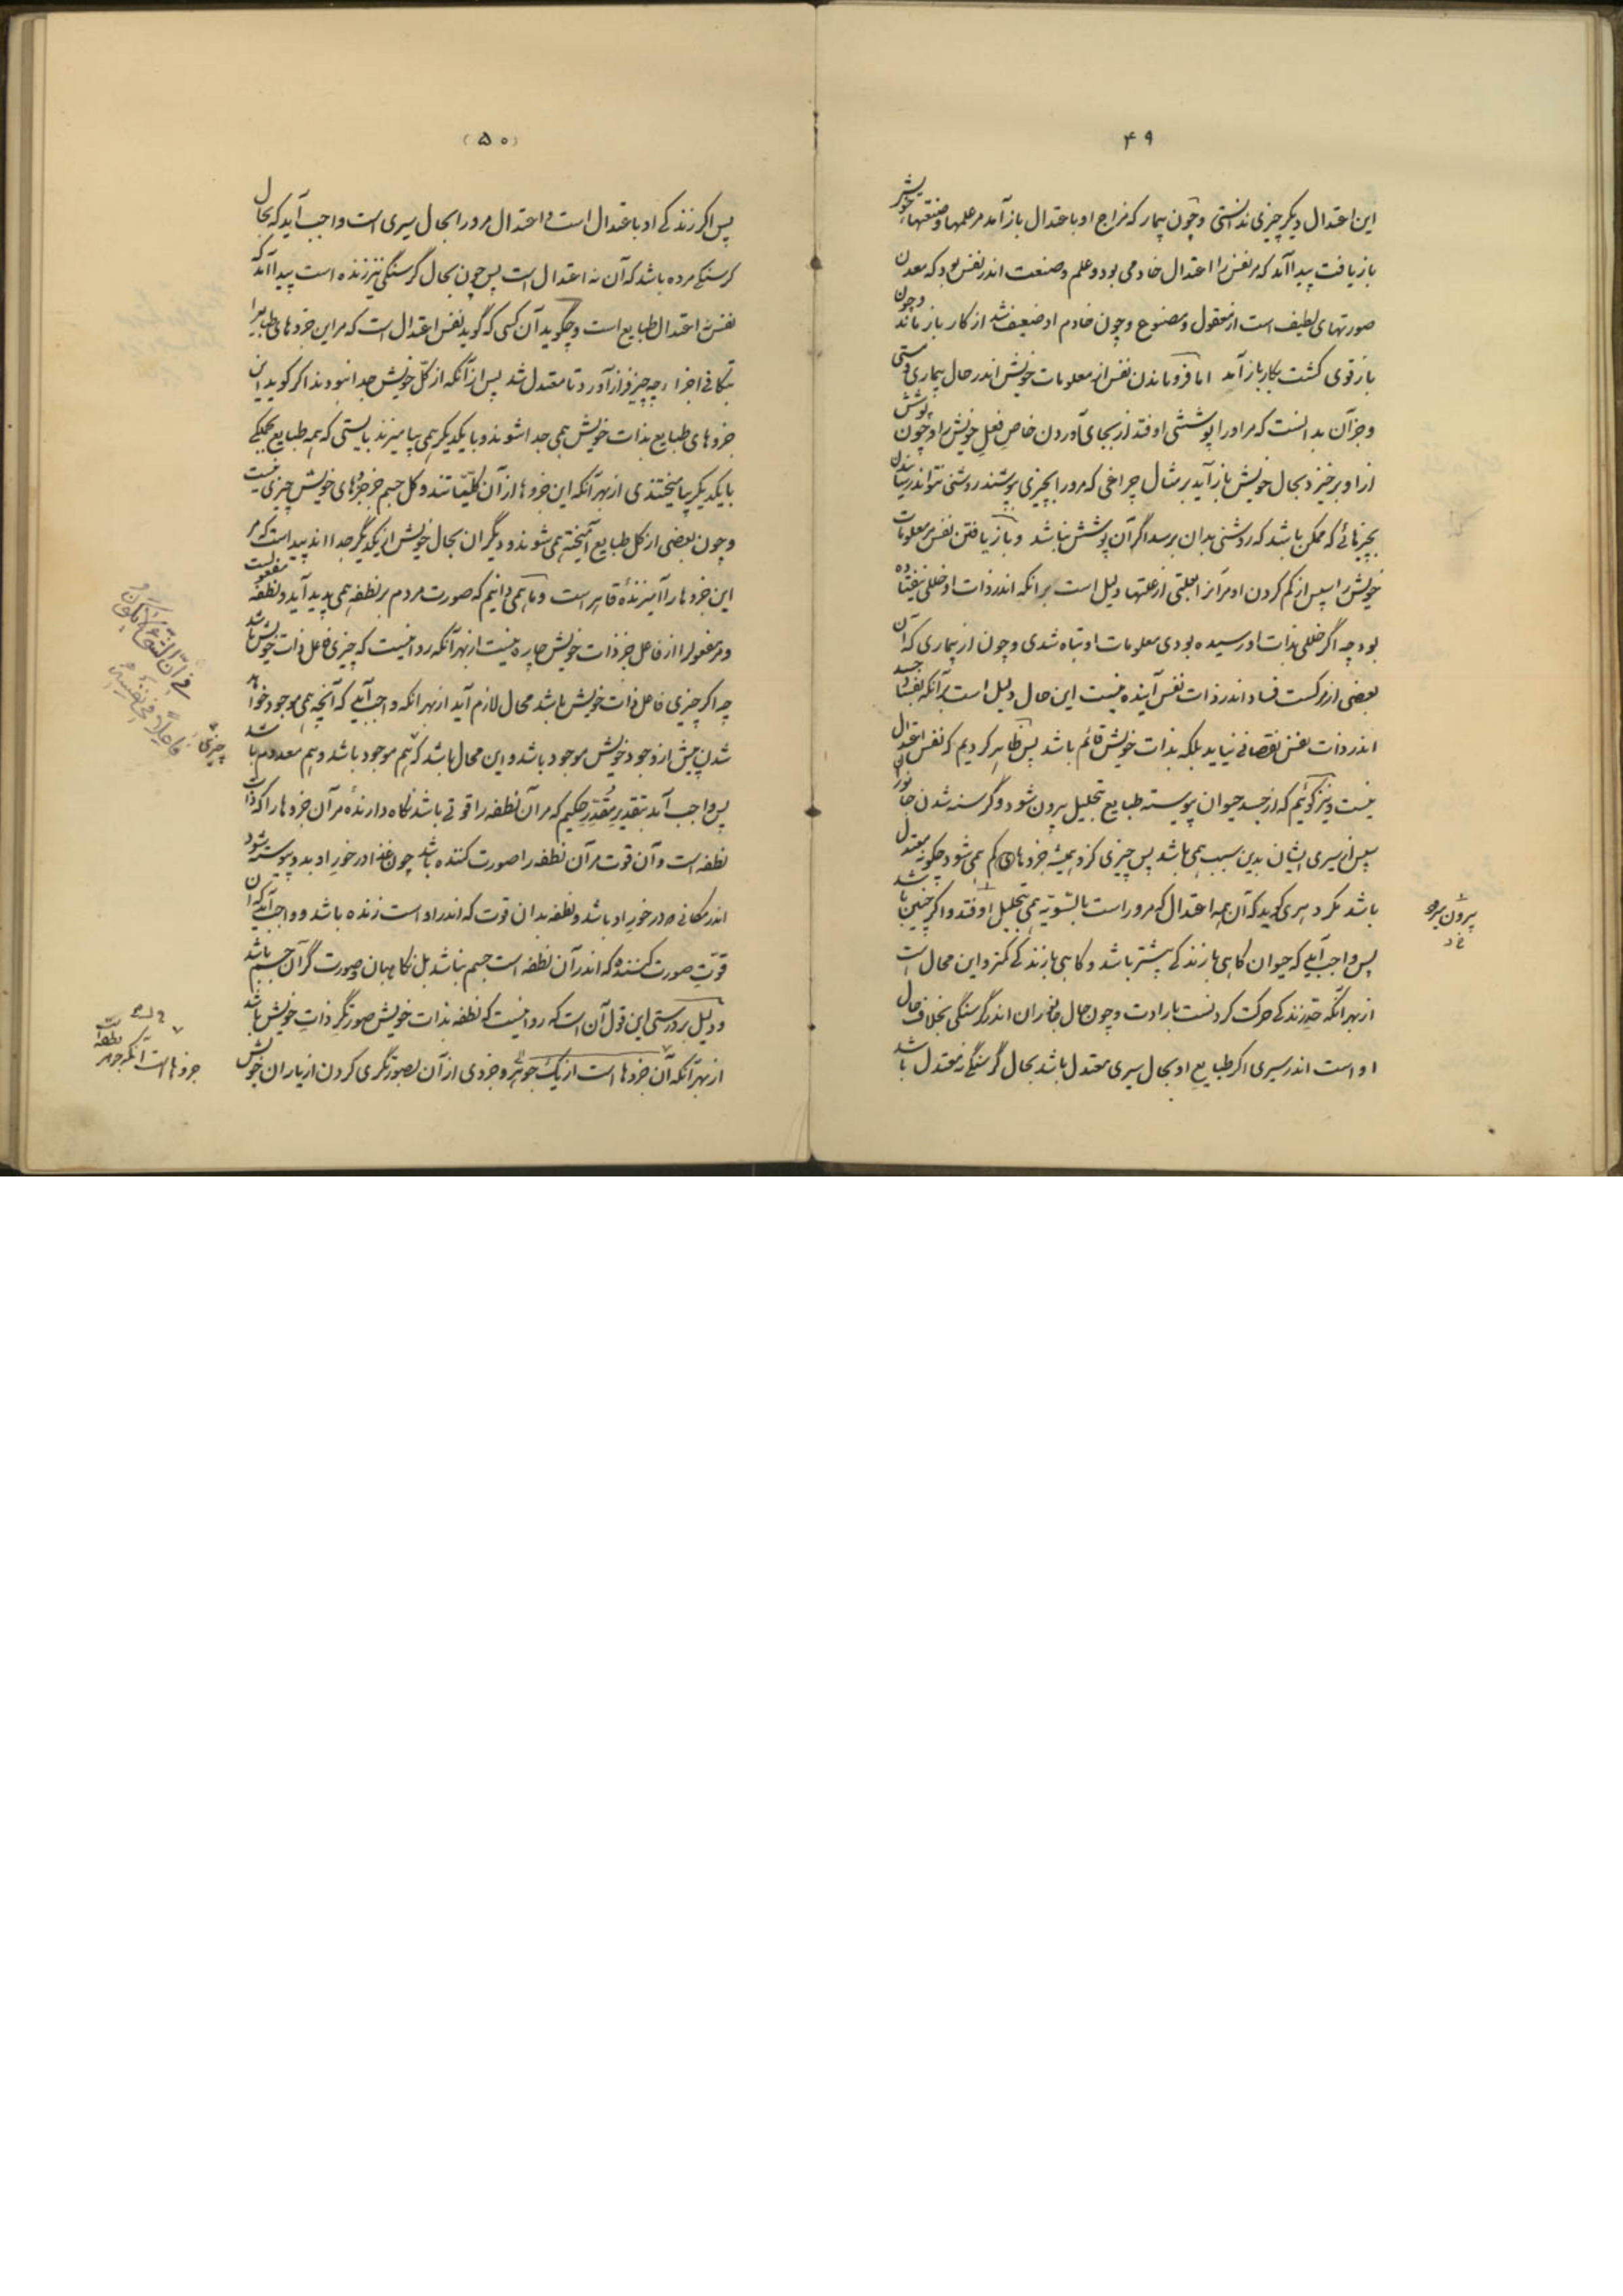 ۴۹
این اعتدال دیگر چیزی ندانستی و چون بیمار که مزاج او باعتدال باز آمد مر علمها و صنعتهاء خویش
باز یافت پیدا آمد که مر نفس را اعتدال خادمی بود و علم و صنعت اندر نفس بود که معدن
صورتهای لطیف است از معقول و مصنوع و چون خادم او ضعیف شد از کار باز ماند و چون
باز قوی گشت بکار باز آمد اما فرو ماندن نفس از معلومات خویش اندر حال بیماری و مستی
و جز آن بدانست که مر او را پوششی اوفتد از بجای آوردن خاص فعل خویش را و چون پوشش
از او برخیزد بحال خویش باز آید بر مثال چراغی که مرورا بچیزی بپوشند روشنی نتواند رسانیدن
بچیزهائی که ممکن باشد که روشنی بدان برسد اگر آن پوشش نباشد و باز یافتن نفس مر معلومات
خویش را سپس از گم کردن او مر آنرا بعلتی از علتها دلیل است بر انکه اندر ذات او خللی نیفتاده
بود چه اگر خللی بذات او رسیده بودی معلومات او تباه شدی و چون از بیماری که آن
بعضی از مرگست فساد اندر ذات نفس آینده نیست این حال دلیل است بر آنکه بفساد جسد
اندر ذات نفس نقصانی نیاید بلکه بذات خویش قائم باشد پس ظاهر کردیم که نفس اعتدال
نیست و نیز گوئیم که از جسد حیوان پیوسته طبایع بتحلیل بیرون شود و گرسنه شدن جانوران
سپس از سیری ایشان بدین سبب همی باشد پس چیزی کزو همیشه جزوهای کم همی شود چگونه معتدل
باشد مگر دهری گوید که آن همه اعتدال که مروراست بالتسویه همی بتحلیل اوفتد و اگر چنین باشد
پس واجب آید که حیوان گاهی بازندگی بیشتر باشد و گاهی بازندگی کمتر و این محال است
از بهر آنکه حد زندگی حرکت کردنست بارادت و چون حال جانوران اندر گرسنگی بخلاف حال
او است اندر سیری اگر طبایع او بحال سیری معتدل باشد بحال گرسنگی نه معتدل باشد
بیرون برد
(۵۰)
پس اگر زندگی او باعتدال است و اعتدال مرورا بحال سیری است واجب آید که بحال
گرسنگی مرده باشد که آن نه اعتدال است پس چون بحال گرسنگی نیز زنده است پیدا آمد که
نفس نه اعتدال طبایع است و چگوید آن کسی که گوید نفس اعتدال است که مر این جزوهای طبایع را
بتکافی اجزا چه چیز فراز آورد تا معتدل شد پس از آنکه از کل خویش جدا نبودند اگر گوید این
جزوهای طبایع بذات خویش همی جدا شوند و با یکدیگر همی بیامیزند بایستی که همه طبایع بجملگی
با یکدیگر بیامیختندی از بهر آنکه این جزوها از آن کلیاتند و کل جسم جز جزوهای خویش چیزی نیست
و چون بعضی از کل طبایع آمیخته همی شوند و دیگران بحال خویش از یکدیگر جدااند پیداست که مر
این جزوها را آمیزندهٔ قاهر است و ما همی دانیم که صورت مردم بر نطفه همی پدید آید و نطفه مفعولست
و مر مفعول را از فاعل جز ذات خویش چاره نیست از بهر آنکه روا نیست که چیزی فاعل ذات خویش باشد
چه اگر چیزی فاعل ذات خویش باشد محال لازم آید از بهر انکه واجب آید که آنچه همی موجود خواهد
شدن پیش از وجود خویش موجود باشد و این محال باشد که هم موجود باشد و هم معدوم باشد
پس واجب آید بتقدیر مقدر حکیم که مر آن نطفه را قوتی باشد نگاه دارندهٔ مر آن جزوها را که ذات
نطفه است و آن قوت مر آن نطفه را صورت کننده باشد چون غذا در خور او بدو پیوسته شود
اندر مکانی در خور او باشد و نطفه بدان قوت که اندر او است زنده باشد و واجب آید که آن
قوت صورت کننده که اندر آن نطفه است جسم نباشد بل نگاهبان و صورت گر آن جسم باشد
و دلیل بر درستی این قول آن است که روا نیست که نطفه بذات خویش صورتگر ذات خویش باشد
از بهر آنکه آن جزوها است از یک جوهر و جزوی از آن بصورتگری کردن از یاران خویش
چیزی
جزوهاست آنکه جوهر نطفه است